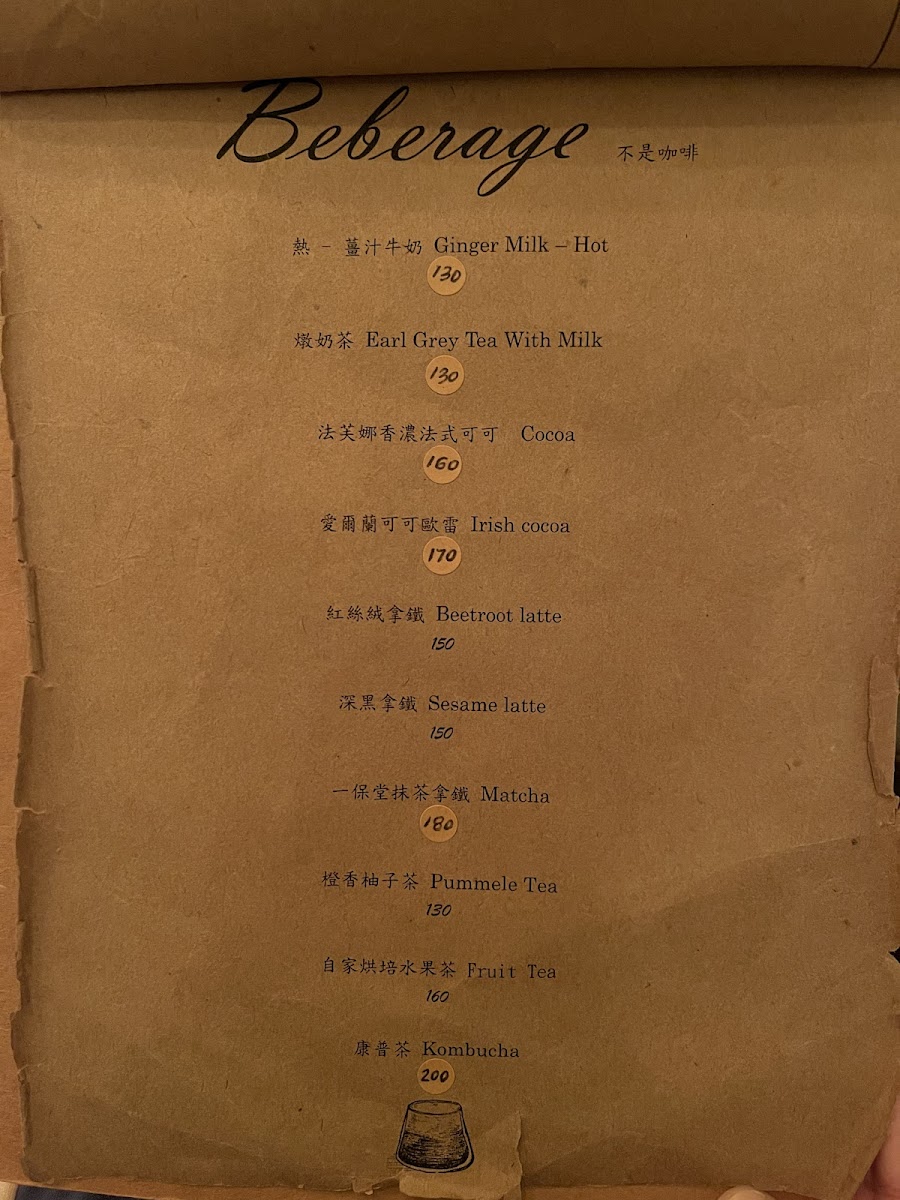 Beberage 不是咖啡
熱 - 薑汁牛奶 Ginger Milk – Hot
130
燉奶茶 Earl Grey Tea With Milk
130
法芙娜香濃法式可可 Cocoa
160
愛爾蘭可可歐雷 Irish cocoa
170
紅絲絨拿鐵 Beetroot latte
150
深黑拿鐵 Sesame latte
150
一保堂抹茶拿鐵 Matcha
180
橙香柚子茶 Pummele Tea
130
自家烘培水果茶 Fruit Tea
160
康普茶 Kombucha
200